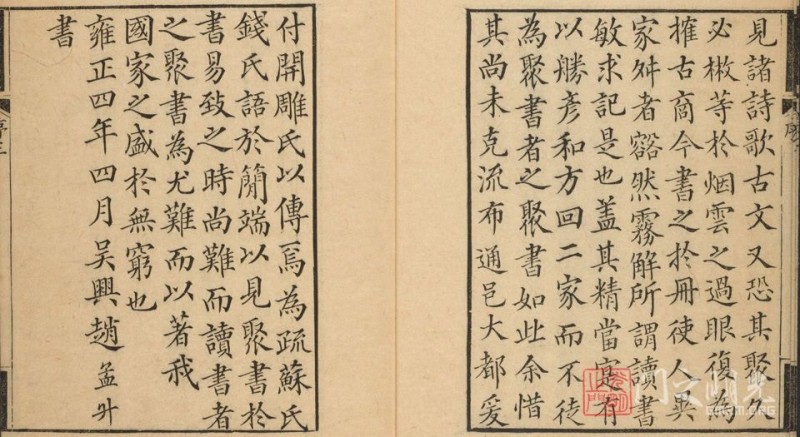 見諸詩歌古文又恐其聚久
必㪚等於烟雲之過眼復為
搉古商今書之於冊使人異
家舛者豁然霧解所謂讀書
敏求記是也蓋其精當寔有
以勝彥和方回二家而不徒
為聚書者之聚書如此余惜
其尚未克流布通邑大都爰
付開雕氏以傳焉為疏蘇氏
錢氏語於簡端以見聚書於
書易致之時尚難而讀書者
之聚書為尤難而以著我
國家之盛於無窮也
雍正四年四月吳興趙孟升
書
序三